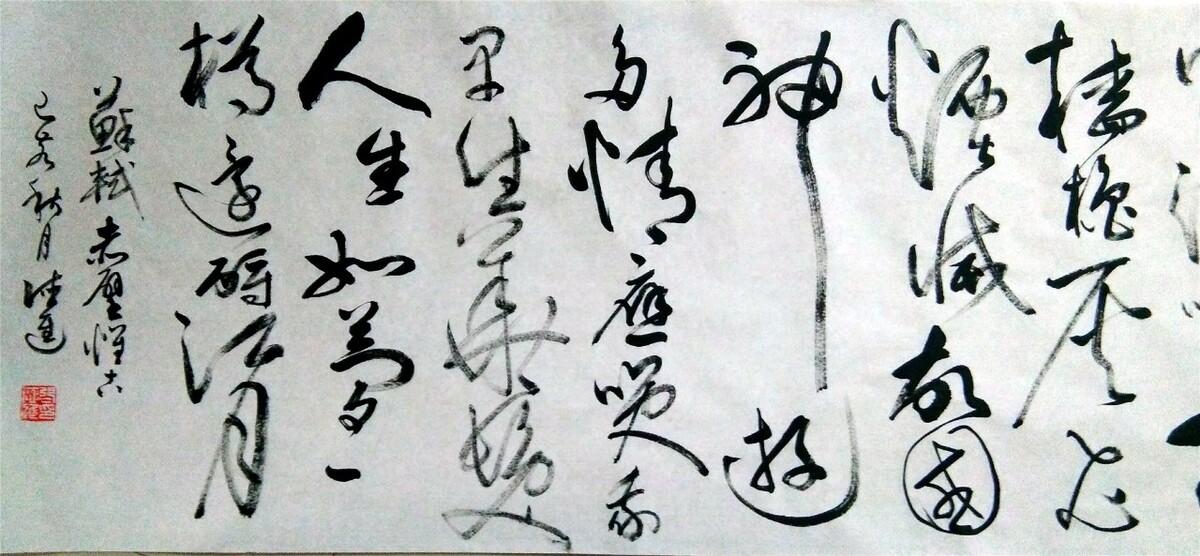 檣櫓灰飛
煙滅故國
神遊
多情應笑我
早生華髮
人生如夢一
樽還酹江月
蘇軾赤壁懷古
己亥秋月